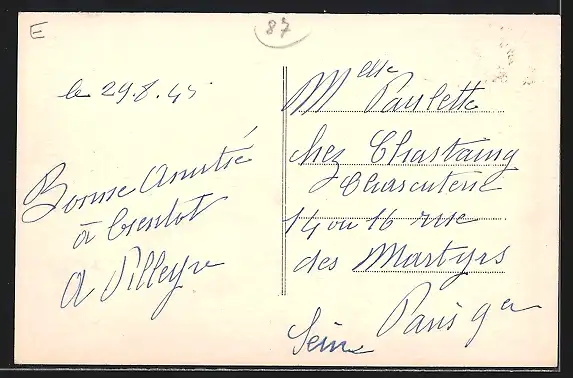 E
87
le 29.8.45
Bonne Amitié
à bientot
Melle Paulette
chez Chastaing
Charcuterie
14 ou 16 rue
des Martyrs
Paris 9er
Seine